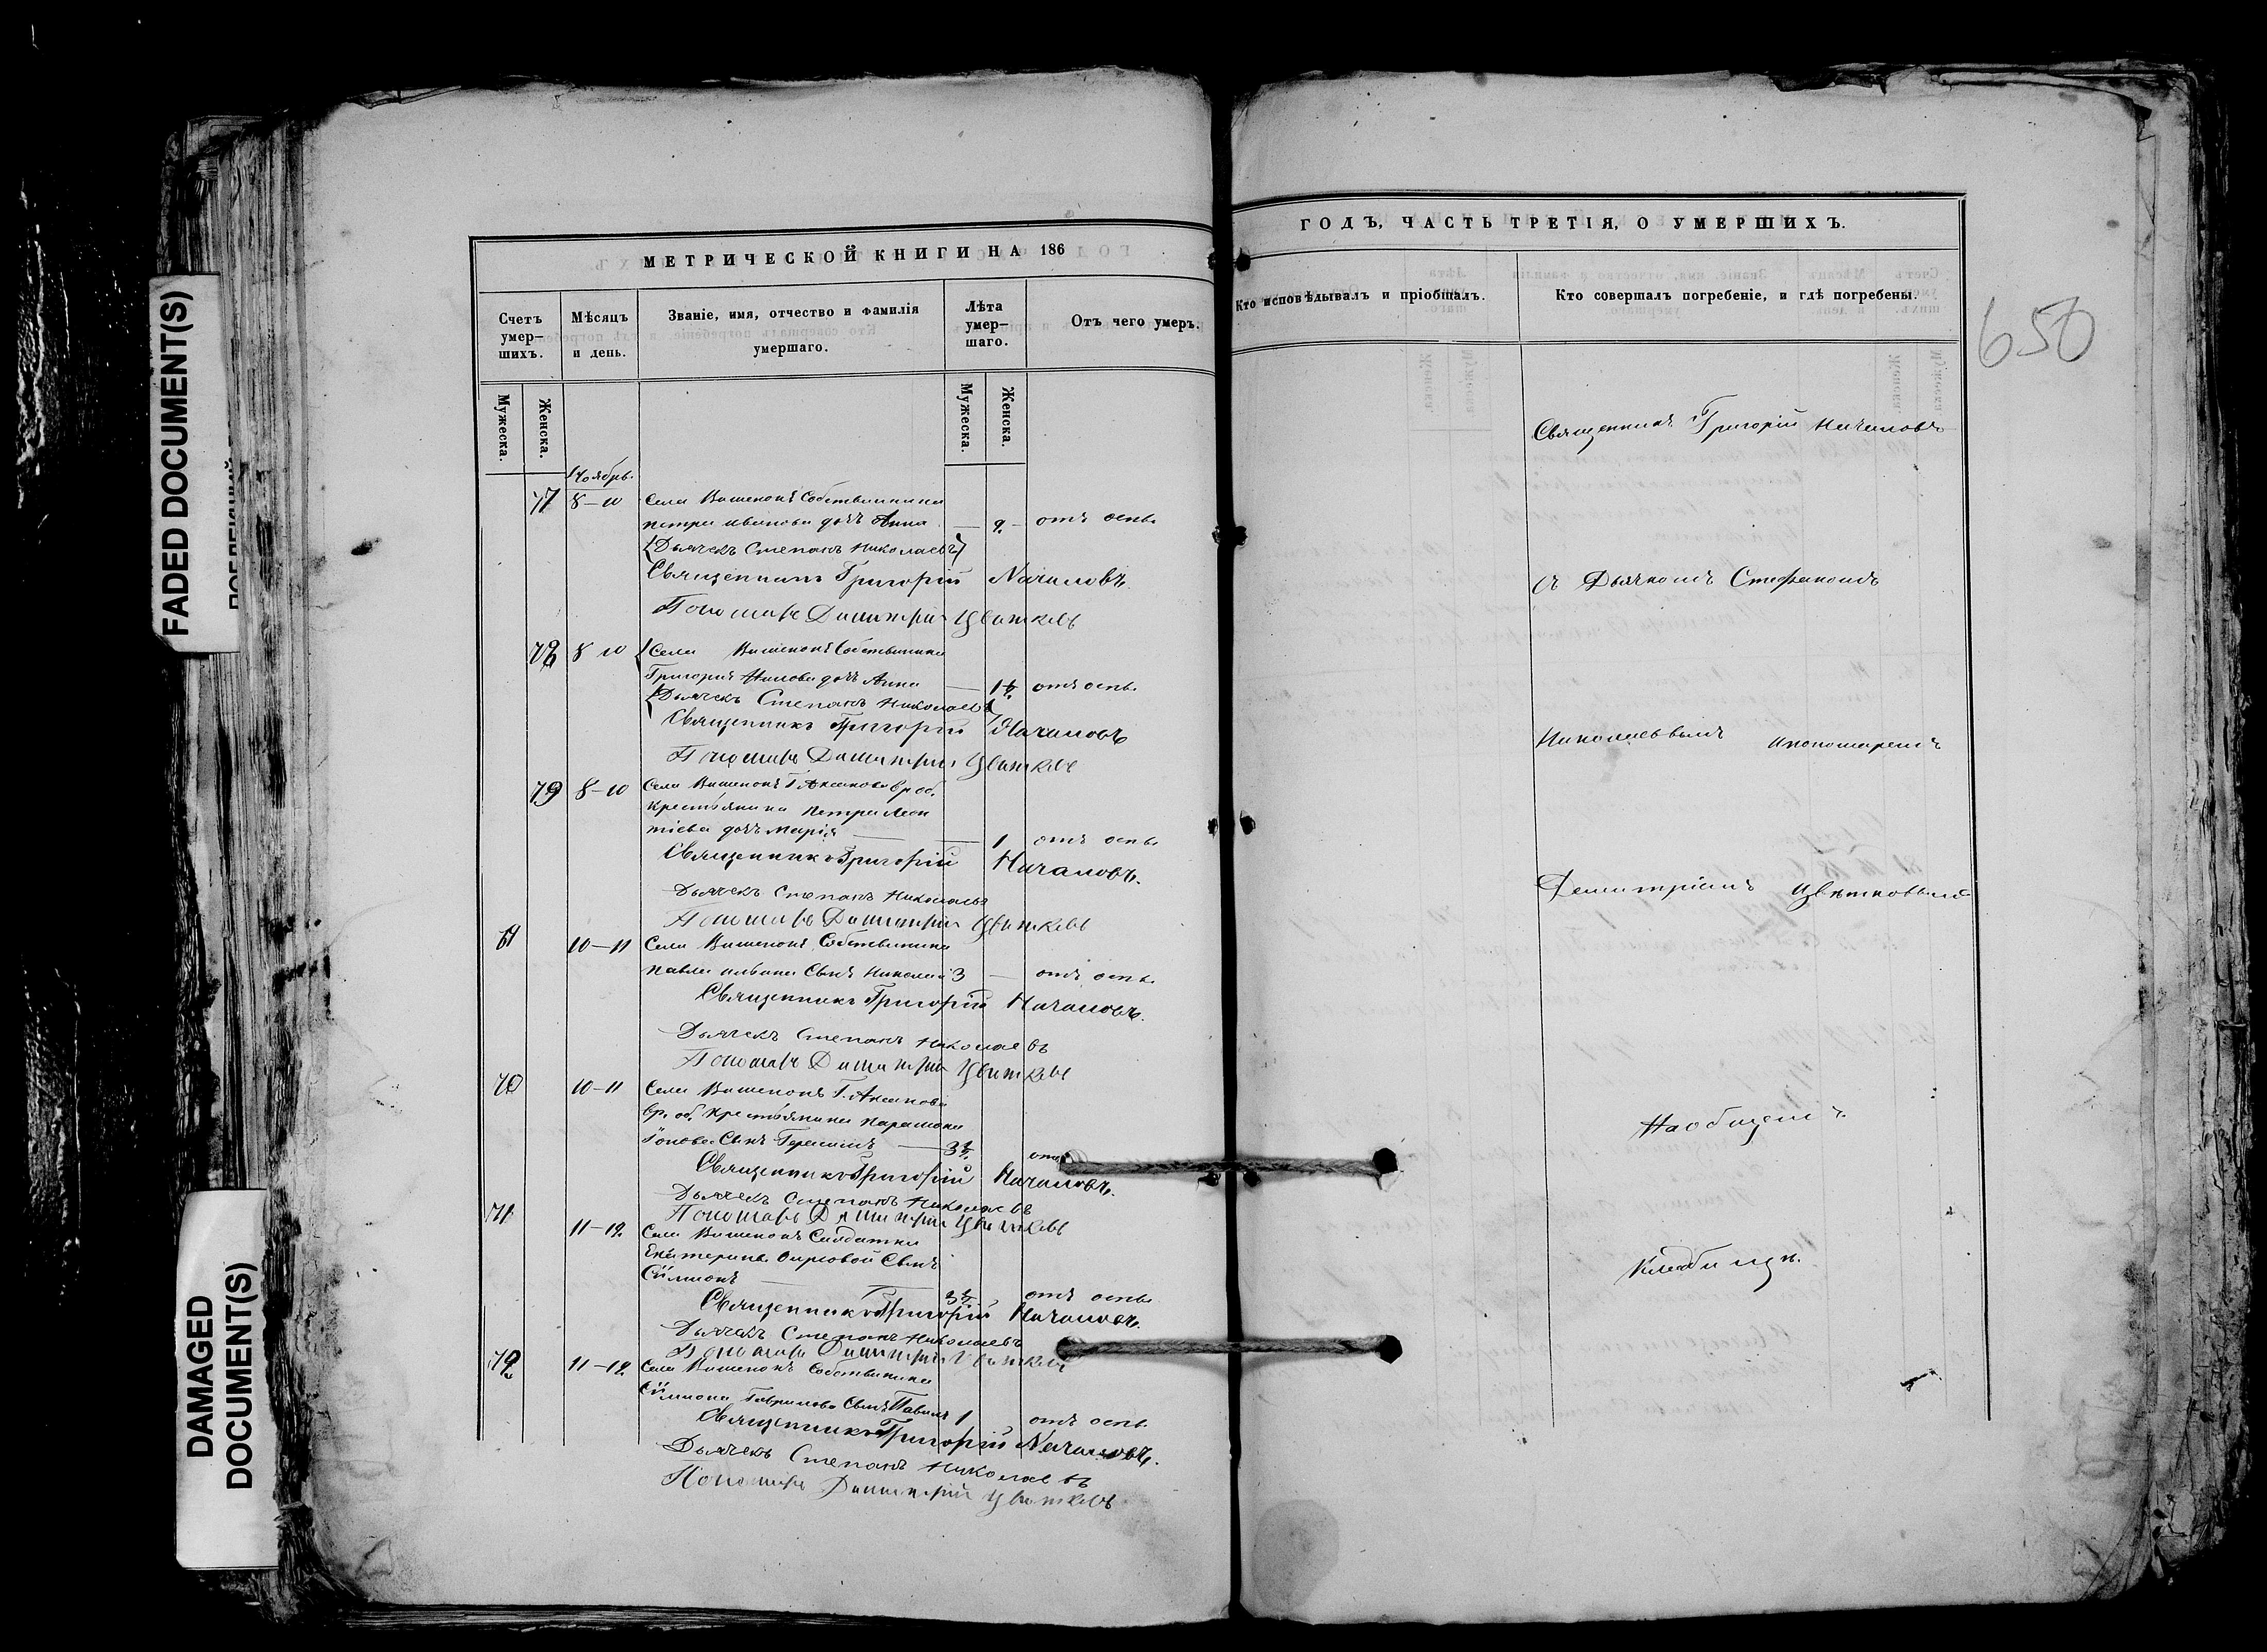 МЕТРИЧЕСКОЙ КНИГИ НА 186
Счетъ умер-шихъ.
Мѣсяцъ и день.
Званіе, имя, отчество и фамилія умершаго.
Лѣта умер-шаго.
Отъ чего умеръ.
Мужеска.
Женска.
Мужеска.
Женска.
Ноябрь.
77 8-10 Села Вишенокъ Собственника
Петра Иванова дочь Анна — 2 — отъ оспы
Дьячекъ Степанъ Николаевъ
Священникъ Григорій Началовъ
Пономарь Димитрій Цвѣтковъ
78 8 10 Села Вишенокъ Собственника
Григорія дочь Анна — отъ оспы
Дьячекъ Степанъ Николаевъ
Священникъ Григорій Началовъ
Пономарь Димитрій Цвѣтковъ
79 8-10 Села Вишенокъ Г. Аксакова вр. об.
крестьянина Петра Леон
тіева дочь Марія — 1 отъ оспы
Священникъ Григорій Началовъ.
Дьячекъ Степанъ Николаевъ
Пономарь Димитрій Цвѣтковъ
10-11 Села Вишенокъ Собственника
Павла Ильина Сынъ Николай 3 — отъ оспы
Священникъ Григорій Началовъ.
Дьячекъ Степанъ Николаевъ
Пономарь Димитрій Цвѣтковъ
70 10-11 Села Вишенокъ Г. Аксакова
вр. об. крестьянина Парамона
Сынъ Герасимъ — 3½ отъ
Священникъ Григорій Началовъ.
Дьячекъ Степанъ Николаевъ
Пономарь Димитрій Цвѣтковъ
71 11-12 Села Вишенокъ Солдатки
Екатерины Сынъ
Симионъ — отъ оспы
Священникъ Григорій Началовъ.
Дьячекъ Степанъ Николаевъ
Пономарь Димитрій Цвѣтковъ
72 11-12 Села Вишенокъ Собственника
Симиона Гаврилова Сынъ Павелъ 1 отъ оспы
Священникъ Григорій Началовъ.
Дьячекъ Степанъ Николаевъ
Пономарь Димитрій Цвѣтковъ
ГОДЪ, ЧАСТЬ ТРЕТІЯ, О УМЕРШИХЪ.
Кто исповѣдывалъ и пріобщалъ.
Кто совершалъ погребеніе, и гдѣ погребены.
650
Священникъ Григорій Началовъ
съ Дьячкомъ Стефаномъ
Николаевымъ и пономаремъ
Димитріемъ Цвѣтковымъ
На общемъ
Кладбищѣ.
FADED DOCUMENT(S)
DAMAGED DOCUMENT(S)